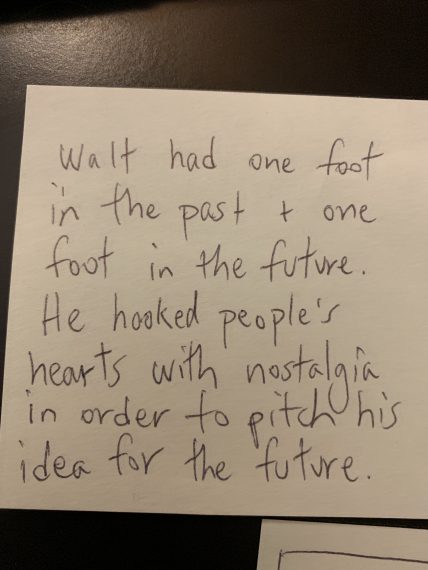 Walt had one foot
in the past + one
foot in the future.
He hooked people's
hearts with nostalgia
in order to pitch his
idea for the future.